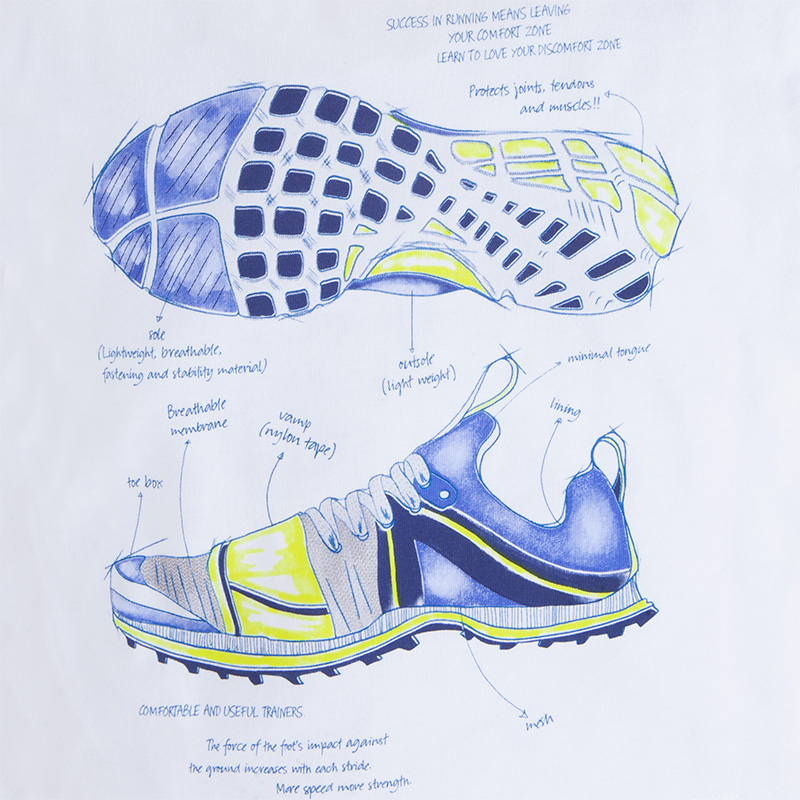 SUCCESS IN RUNNING MEANS LEAVING
YOUR COMFORT ZONE
LEARN TO LOVE YOUR DISCOMFORT ZONE
Protects joints, tendons
and muscles!!
sole
(Lightweight, breathable,
fastening and stability material)
outsole
(light weight)
minimal tongue
lining
Breathable
membrane
vamp
(nylon tape)
toe box
mesh
COMFORTABLE AND USEFUL TRAINERS
The force of the foot's impact against
the ground increases with each stride.
More speed more strength.